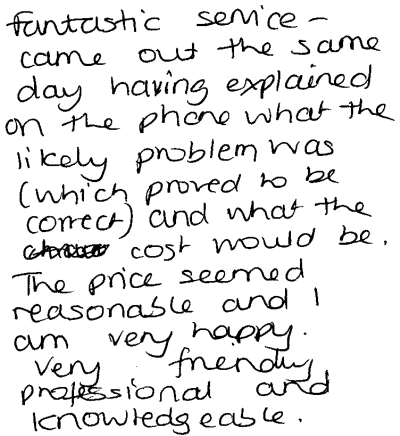 fantastic service -
came out the same
day having explained
on the phone what the
likely problem was
(which proved to be
correct) and what the
cost would be.
The price seemed
reasonable and I
am very happy.
Very friendly,
professional and
knowledgeable.